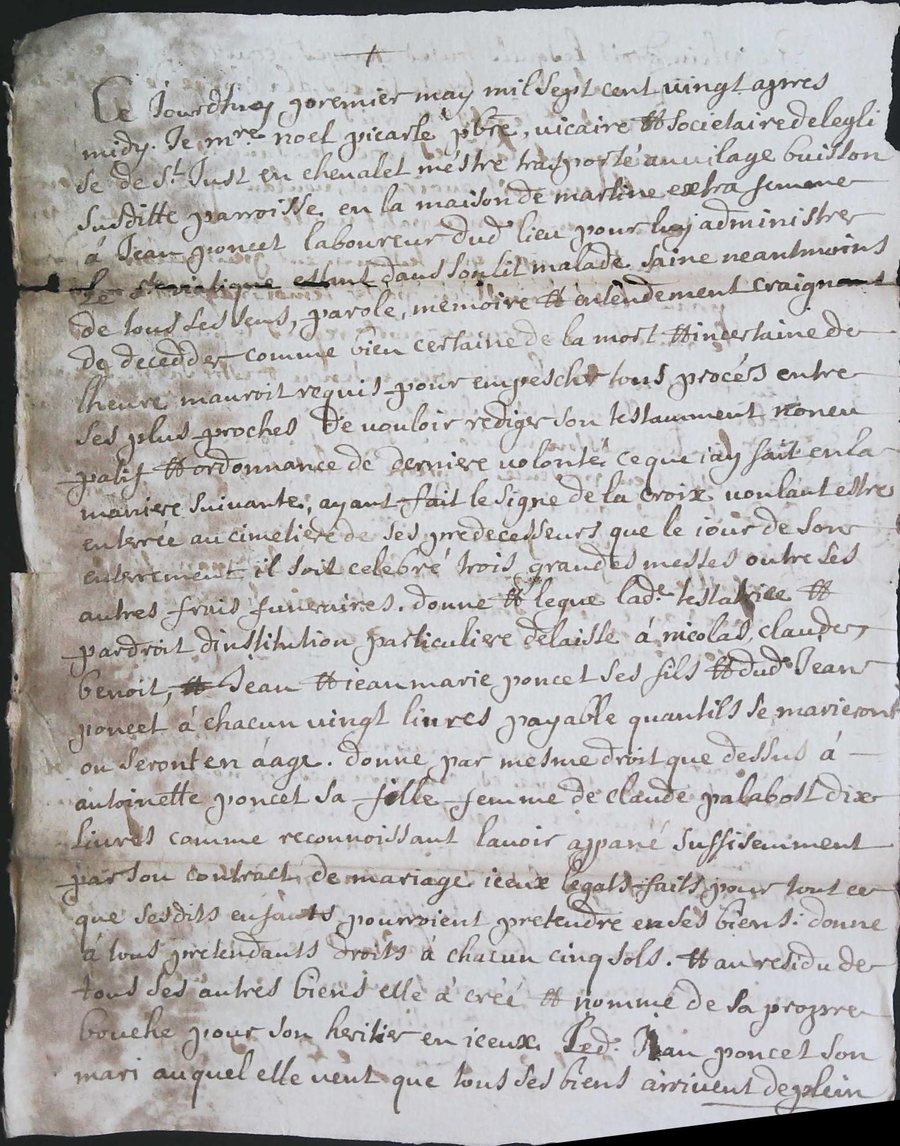 Ce Jourdhuy premier may mil sept cent vingt apres
midy. Je mre noel picarle pbre, vicaire et societaire de legli
se de St Just en chevalet mestre trasporté au vilage buisson
susditte parroisse en la maison de martine extra femme
á Jean poncet laboureur dud lieu pour luy administrer
Le st viatique estant dans son lit malade saine neantmoins
de tous ses sens, parole, memoire et entendement craignant
de decedder comme bien certaine de la mort et incertaine de
lheure mauroit requis pour empescher tous procés entre
ses plus proches de vouloir rediger son testamment noncu
patif et ordonnance de derniere volonté ce que iay fait en la
maniere suivante, ayant fait le signe de la croix voulant estre
enterrée au cimetiere de ses predecesseurs que le iour de son
enterrement il soit celebré trois grandes messes outre ses
autres frais funeraires. donne et legue lade testatrice et
par droit dinstitution particuliere delaisse á nicolas, claude,
benoit, et Jean et iean marie poncet ses fils et dud Jean
poncet á chacun vingt livres payable quant ils se marieront
ou seront en áage. donne par mesme droit que dessus á
antoinette poncet sa fille femme de claude palabost dix
livres comme reconnoissant lavoir appané suffisemment
par son contract de mariage iceux légats faits pour tout ce
que sesdits enfants pourroient pretendre en ses biens. donne
á tous pretendants droits á chacun cinq sols. et au residu de
tous ses autres biens elle á créé et nommé de sa propre
bouche pour son heritier en iceux Led. Jean poncet son
mari auquel elle veut que tous ses biens arrivent de plein